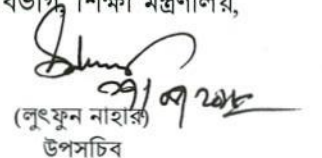 বিভাগ, শিক্ষা মন্ত্রণালয়,
(লুৎফুন নাহার)
উপসচিব